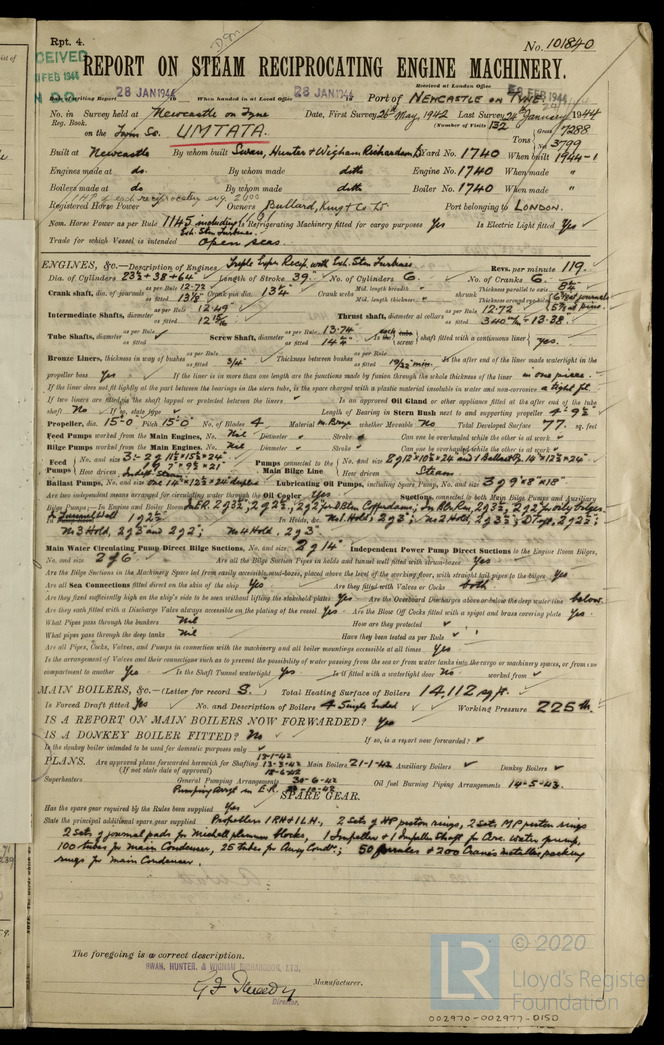 Rpt. 4.
No. 101840
REPORT ON STEAM RECIPROCATING ENGINE MACHINERY.
Received at London Office
Date of writing Report 28 JAN 1944 When handed in at Local Office 28 JAN 1944 Port of NEWCASTLE ON TYNE FEB 1944
No. in Survey held at Newcastle on Tyne Date, First Survey 26th May, 1942 Last Survey 24 January 1944
Reg. Book. (Number of Visits 132
on the Twin Sc. UMTATA. Tons Gross 7288 Net 3799
Built at Newcastle By whom built Swan, Hunter & Wigham Richardson Ld Yard No. 1740 When built 1944-1
Engines made at do. By whom made ditto Engine No. 1740 When made "
Boilers made at do By whom made ditto Boiler No. 1740 When made "
Registered Horse Power Owners Bullard, King & Co Ld Port belonging to LONDON.
Nom. Horse Power as per Rule 1145 including Exh. Stm Turbines. Is Refrigerating Machinery fitted for cargo purposes Yes Is Electric Light fitted Yes
Trade for which Vessel is intended Open seas.
ENGINES, &c.—Description of Engines Triple Exper Recip with Exh. Stm Turbines. Revs. per minute 119.
Dia. of Cylinders 23½ + 38 + 64 Length of Stroke 39" No. of Cylinders 6. No. of Cranks 6.
Crank shaft, dia. of journals as per Rule 12.72 as fitted 13⅛ Crank pin dia. 13¼ Crank webs Mid. length breadth Mid. length thickness shrunk Thickness parallel to axis Thickness around eye-hole
Intermediate Shafts, diameter as per Rule 12.49 as fitted 12 15/16 Thrust shaft, diameter at collars as per Rule 12.72 as fitted 340 m/m = 13.38.
Tube Shafts, diameter as per Rule as fitted Screw Shaft, diameter as per Rule 13.74 as fitted 14¼ Is the screw shaft fitted with a continuous liner yes.
Bronze Liners, thickness in way of bushes as per Rule as fitted 3/4" Thickness between bushes as per Rule as fitted 19/32 min. Is the after end of the liner made watertight in the
propeller boss Yes If the liner is in more than one length are the junctions made by fusion through the whole thickness of the liner in one piece.
If the liner does not fit tightly at the part between the bearings in the stern tube, is the space charged with a plastic material insoluble in water and non-corrosive a tight fit.
If two liners are fitted, is the shaft lapped or protected between the liners Is an approved Oil Gland or other appliance fitted at the after end of the tube
shaft No If so, state type Length of Bearing in Stern Bush next to and supporting propeller 4'-9½"
Propeller, dia. 15'-0 Pitch 15'0" No. of Blades 4 Material M. Bronze whether Moveable No Total Developed Surface 77. sq. feet
Feed Pumps worked from the Main Engines, No. Nil Diameter Stroke Can one be overhauled while the other is at work
Bilge Pumps worked from the Main Engines, No. Nil Diameter Stroke Can one be overhauled while the other is at work
Feed Pumps No. and size How driven Indept Steam Pumps connected to the Main Bilge Line No. and size How driven Steam
Ballast Pumps, No. and size one 14" x 12½" x 24" duplex Lubricating Oil Pumps, including Spare Pump, No. and size 3 of 9" x 8" x 18"
Are two independent means arranged for circulating water through the Oil Cooler Yes Suctions, connected to both Main Bilge Pumps and Auxiliary
Main Water Circulating Pump Direct Bilge Suctions, No. and size 2 of 14 Independent Power Pump Direct Suctions to the Engine Room Bilges,
No. and size 2 of 6 Are all the Bilge Suction Pipes in holds and tunnel well fitted with strum-boxes Yes
Are the Bilge Suctions in the Machinery Space led from easily accessible mud-boxes, placed above the level of the working floor, with straight tail pipes to the bilges Yes
Are all Sea Connections fitted direct on the skin of the ship Yes Are they fitted with Valves or Cocks both
Are they fixed sufficiently high on the ship's side to be seen without lifting the stokehold plates Yes Are the Overboard Discharges above or below the deep water line below
Are they each fitted with a Discharge Valve always accessible on the plating of the vessel Yes Are the Blow Off Cocks fitted with a spigot and brass covering plate Yes.
What Pipes pass through the bunkers Nil How are they protected
What pipes pass through the deep tanks Nil Have they been tested as per Rule
Are all Pipes, Cocks, Valves, and Pumps in connection with the machinery and all boiler mountings accessible at all times Yes
Is the arrangement of Valves and their connections such as to prevent the possibility of water passing from the sea or from water tanks into the cargo or machinery spaces, or from one
compartment to another Yes Is the Shaft Tunnel watertight Yes Is it fitted with a watertight door No worked from
MAIN BOILERS, &c.—(Letter for record S. Total Heating Surface of Boilers 14,112 sq ft.
Is Forced Draft fitted Yes No. and Description of Boilers 4 Single Ended Working Pressure 225 lb.
IS A REPORT ON MAIN BOILERS NOW FORWARDED? Yes
IS A DONKEY BOILER FITTED? No If so, is a report now forwarded?
Is the donkey boiler intended to be used for domestic purposes only
PLANS. Are approved plans forwarded herewith for Shafting 13-1-42 13-3-42 18-6-42 Main Boilers 21-1-42 Auxiliary Boilers Donkey Boilers
(If not state date of approval)
Superheaters General Pumping Arrangements 30-6-42 Oil fuel Burning Piping Arrangements 14-5-43.
Pumping Arrgt in E.R.
SPARE GEAR.
Has the spare gear required by the Rules been supplied Yes
State the principal additional spare gear supplied Propellers 1 RH & 1 LH., 2 sets of HP piston rings, 2 sets MP piston rings
2 sets of journal pads for Michell plummer blocks, 1 Impeller & 1 Impeller Shaft for Circ. water pump,
100 tubes for Main Condenser, 25 tubes for Auxy Condr; 50 ferrules & 200 Cranes metallic packing
rings for main Condenser.
The foregoing is a correct description.
SWAN, HUNTER, & WIGHAM RICHARDSON, LTD.
Manufacturer.
Director.
© 2020
Lloyd's Register
Foundation
002970-002977-0150